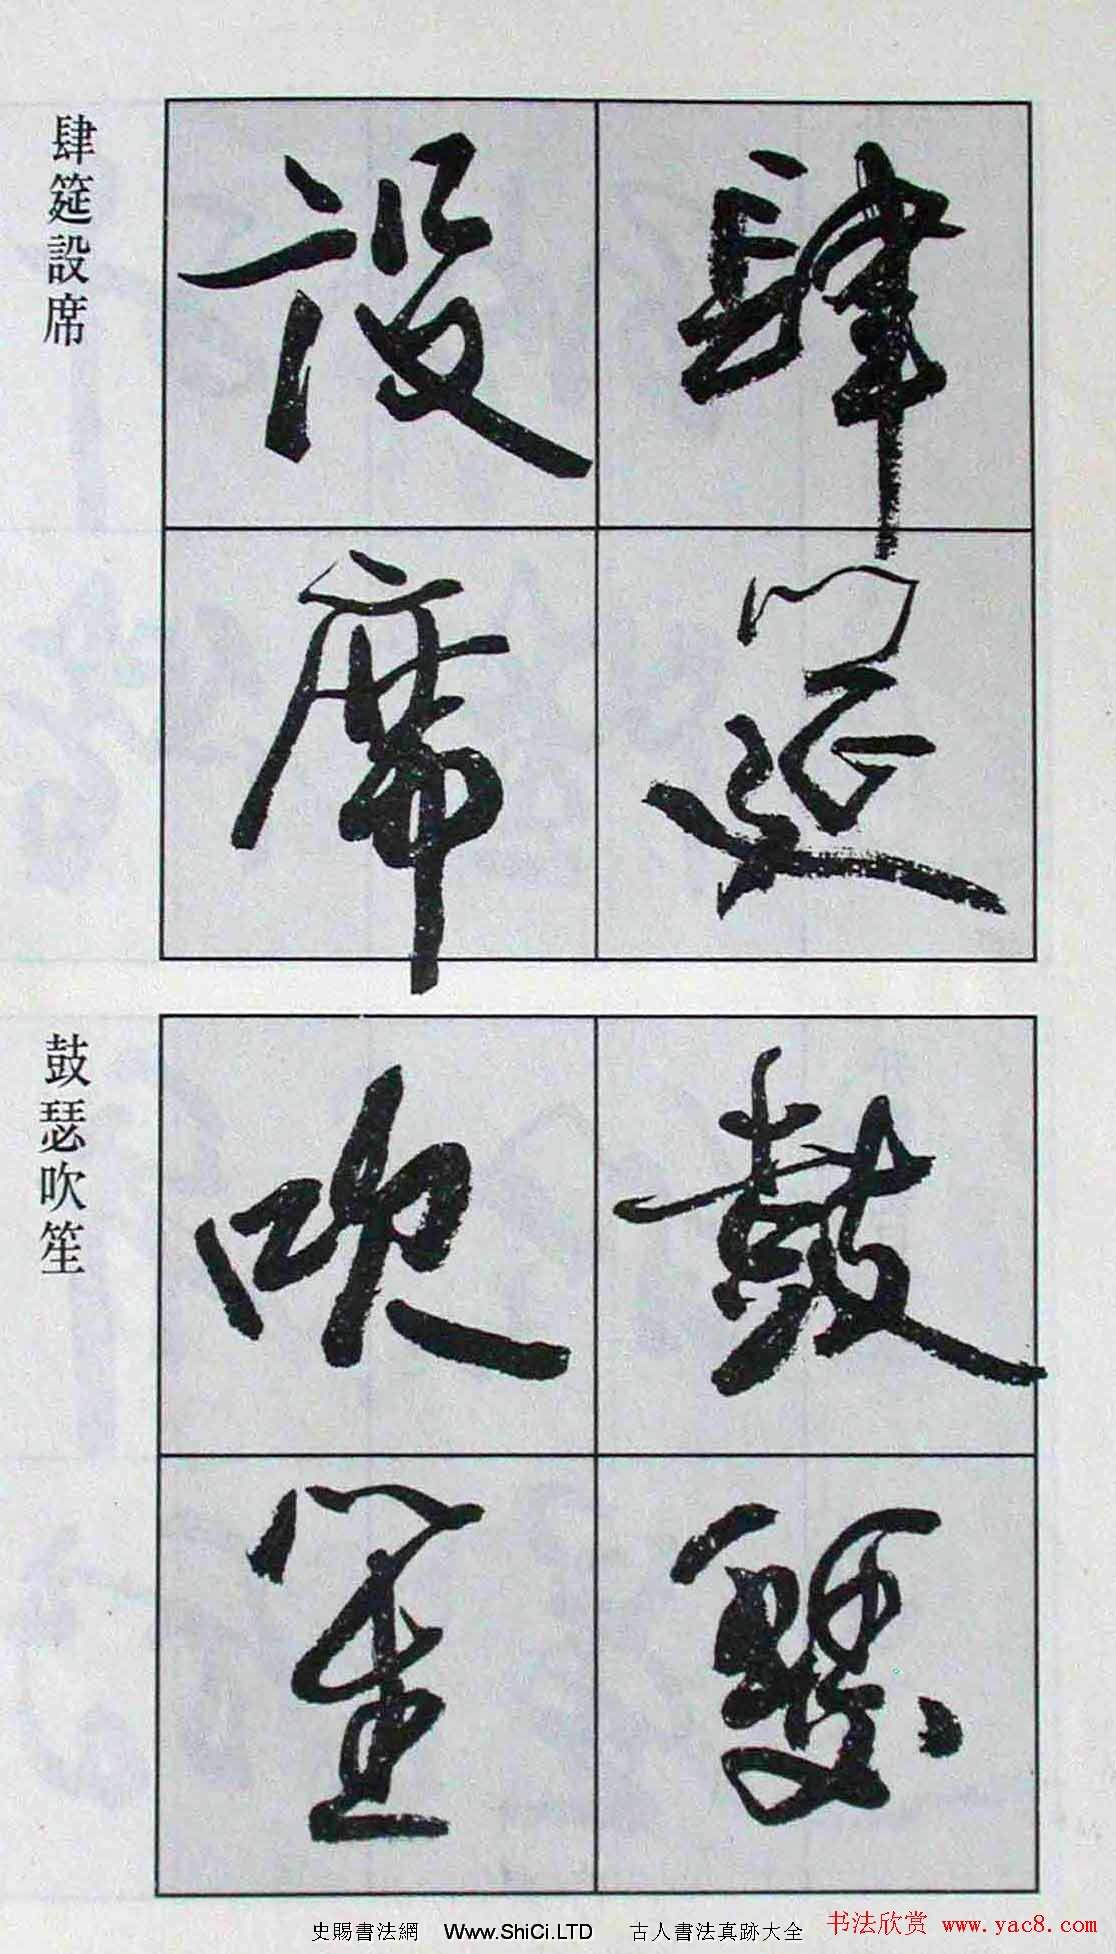 肆筵
設席
肆筵設席
鼓瑟
吹笙
鼓瑟吹笙
史賜書法網 Www.ShiCi.LTD 古人書法真跡大全
书法欣赏 www.yac8.com